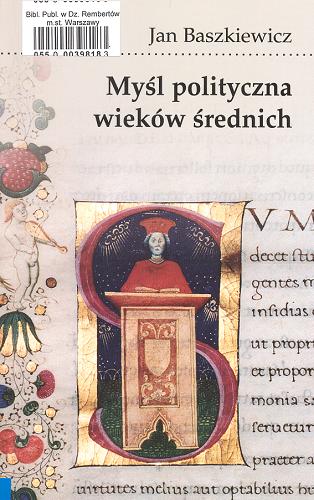 Bibl. Publ. w Dz. Rembertów
m.st. Warszawy
055 0 0039818 3
Jan Baszkiewicz
Myśl polityczna
wieków średnich
S
VM
decet stu
gentes m
insidias
aut propri
et propor
monia sa
seructur
praeter a
uirtutes melius aut optabilius hu